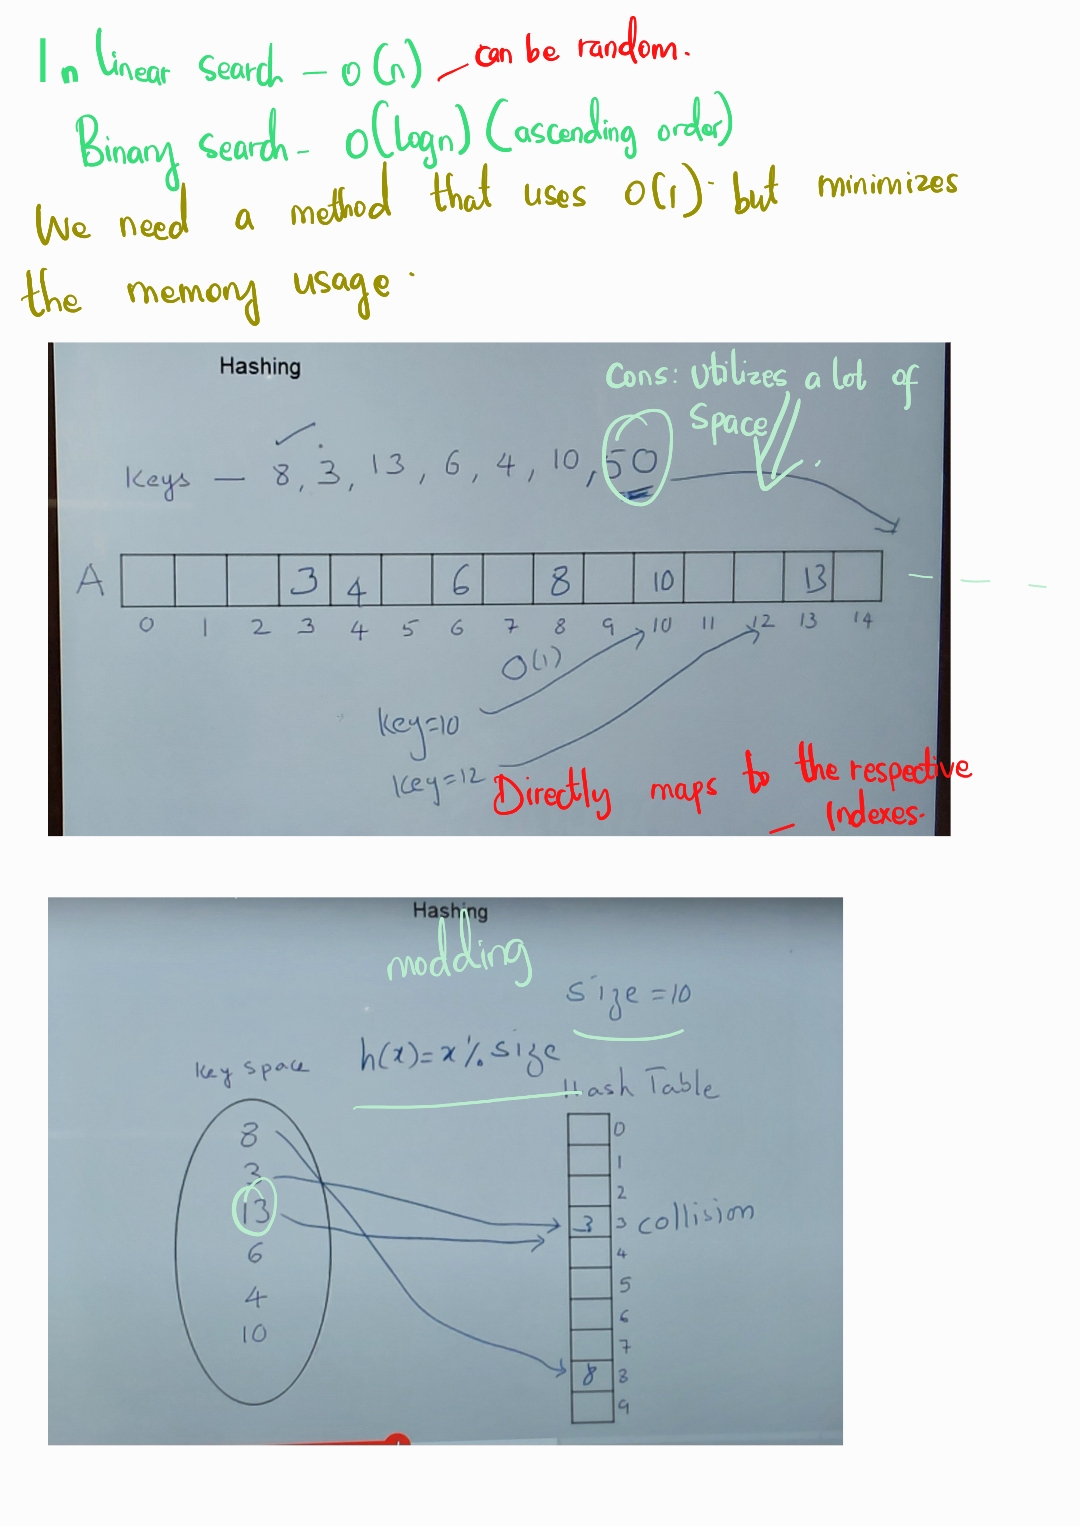 In linear search - O(n) - can be random.
Binary search - O(logn) (ascending order)
We need a method that uses O(1) but minimizes
the memory usage.
Hashing
Cons: Utilizes a lot of
Space
Keys - 8, 3, 13, 6, 4, 10, 50
A 3 4 6 8 10 13
0 1 2 3 4 5 6 7 8 9 10 11 12 13 14
O(1)
Key=10
Key=12
Directly maps to the respective
- Indexes.
Hashing
modding
size = 10
h(x) = x % size
Key space
Hash Table
8
3
13
6
4
10
0
1
2
3 3 collision
4
5
6
7
8 8
9